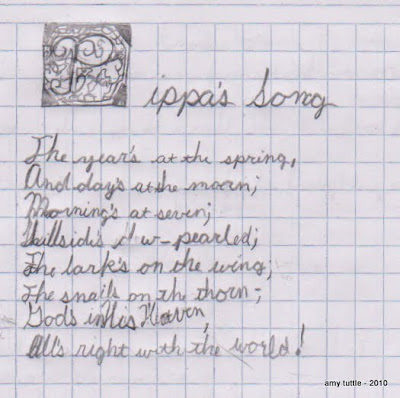 Pippa's Song
The year's at the spring,
And day's at the morn;
Morning's at seven;
Hillside's dew-pearled;
The lark's on the wing;
The snail's on the thorn;
God's in His Heaven,
All's right with the world!
amy tuttle - 2010